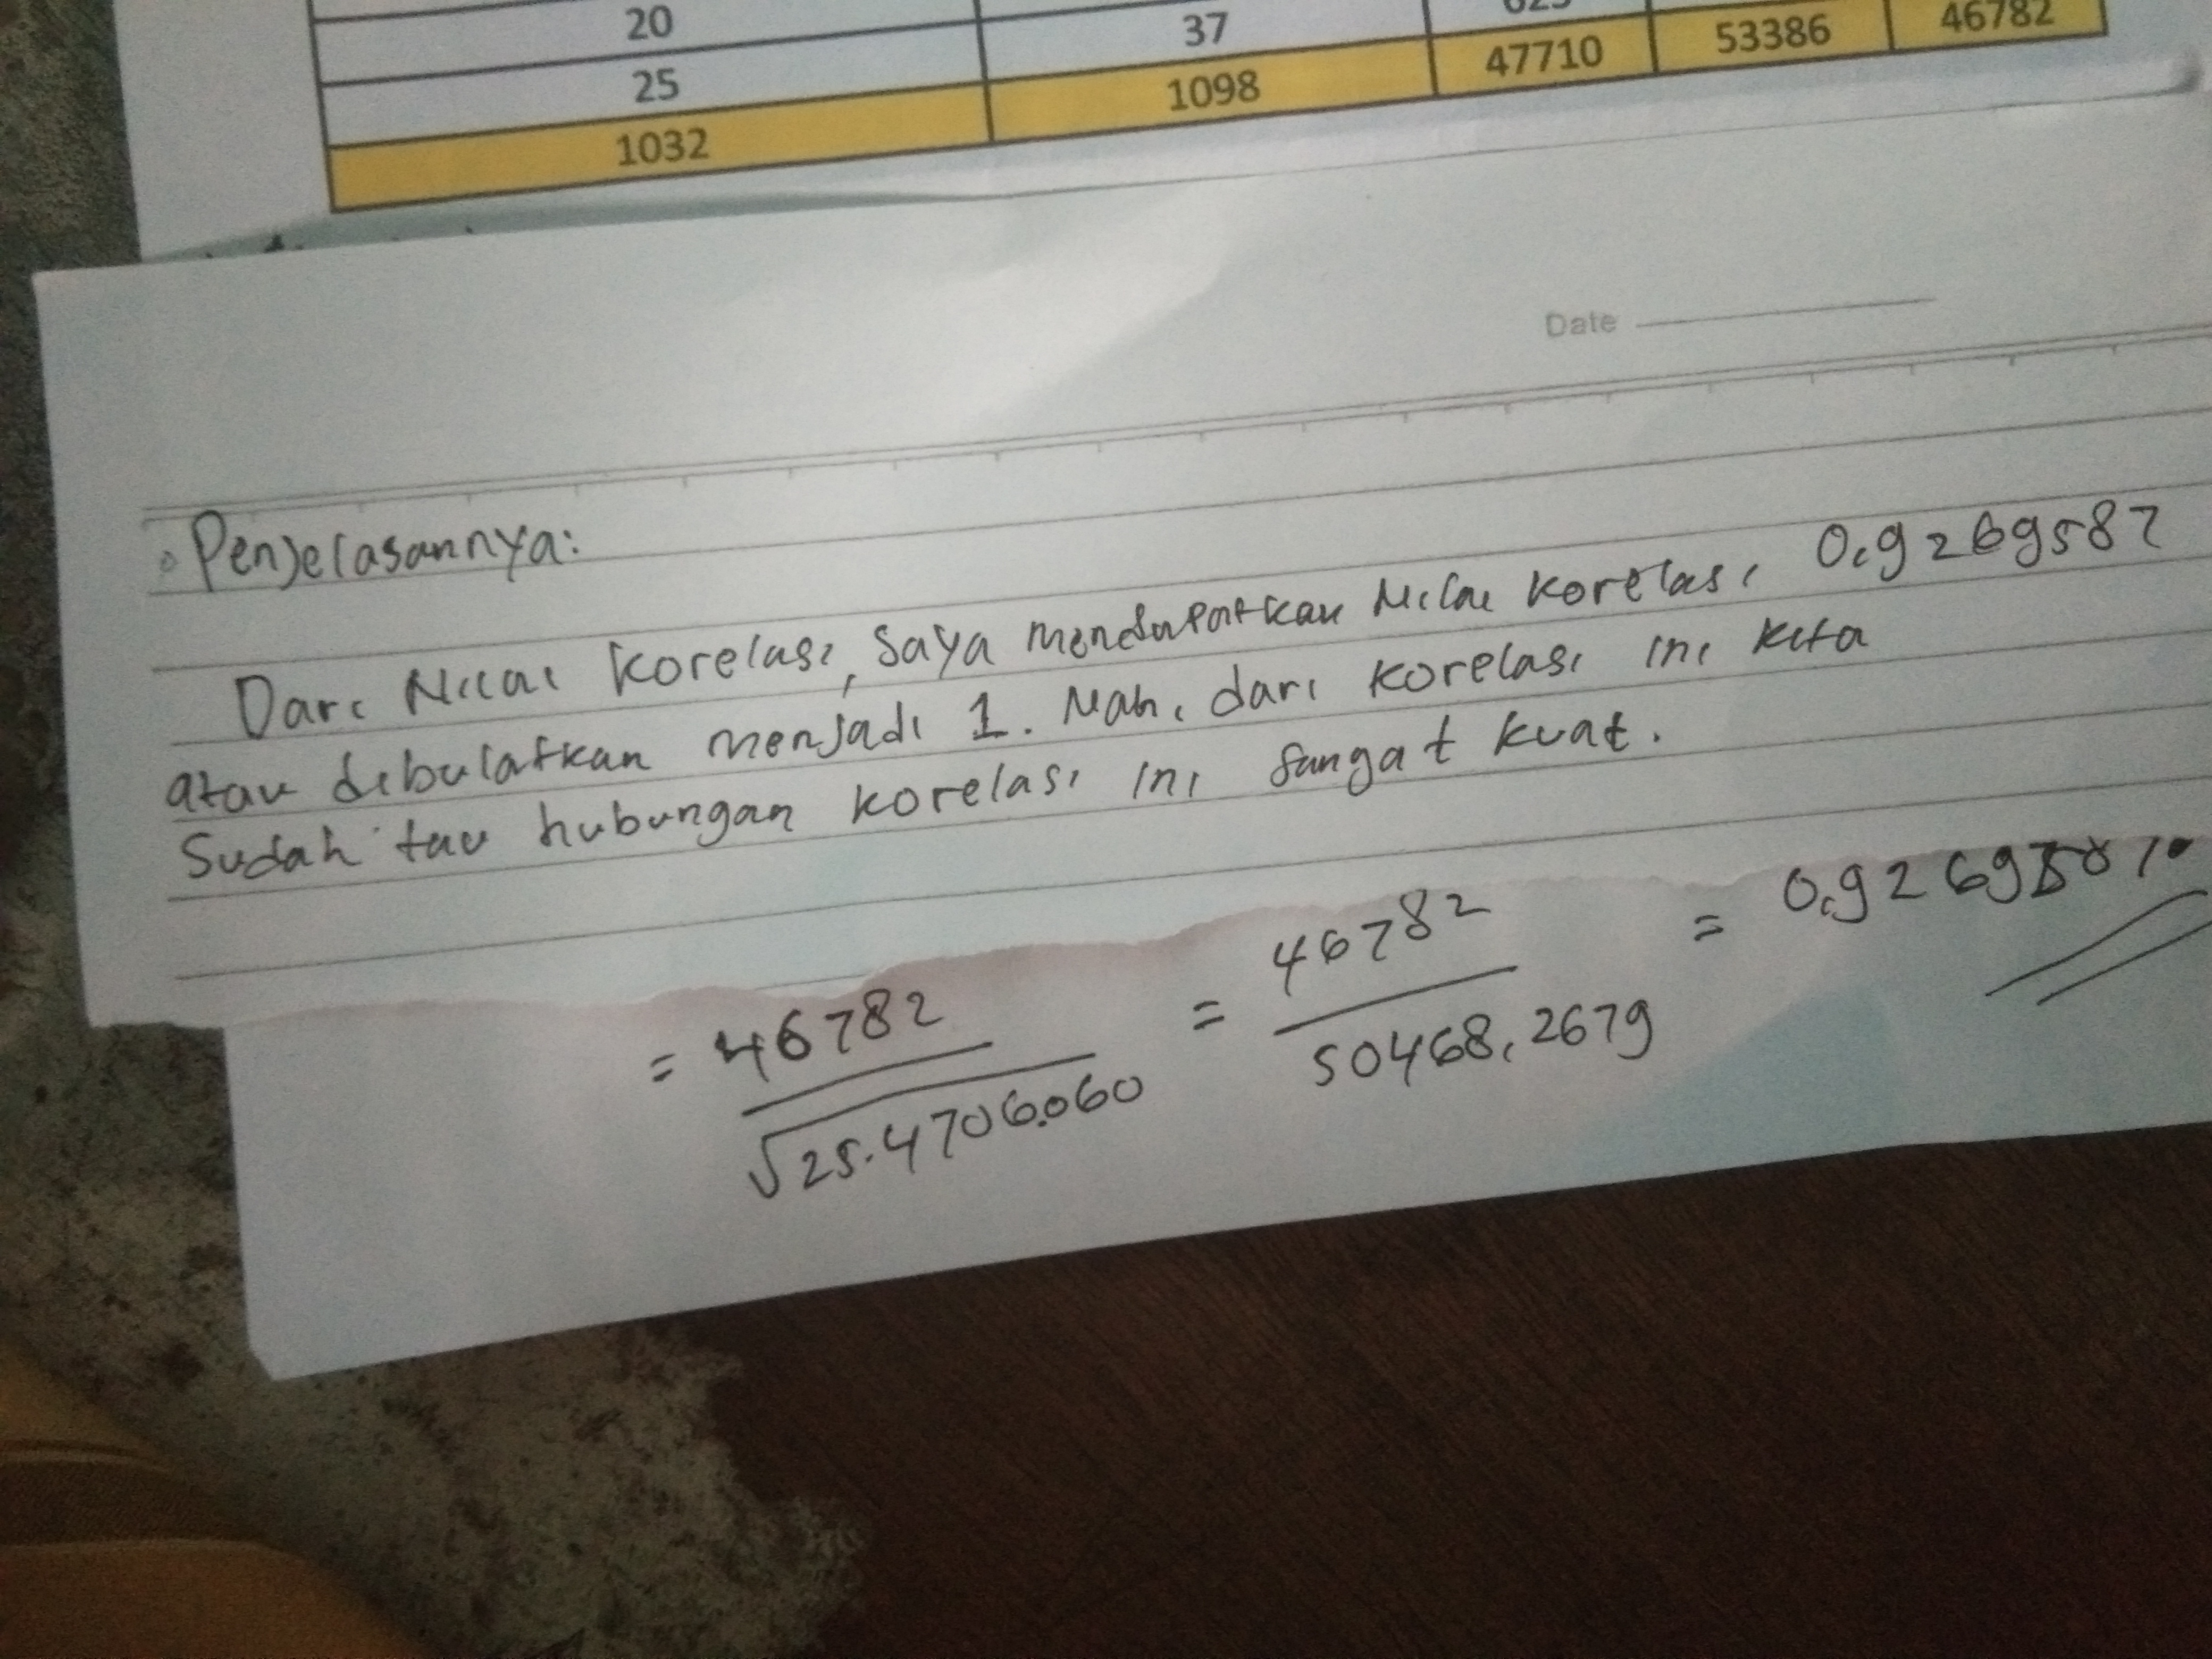 20 37 625
25 1098 47710 53386 46782
1032
Date
Penjelasannya:
Dari Nilai korelasi, saya mendapatkan Nilai korelasi 0,9269587
atau dibulatkan menjadi 1. Nah, dari korelasi ini kita
Sudah tau hubungan korelasi ini sangat kuat.
= 46782 = 46782 = 0,92695
√25.4706.060 50468,2679